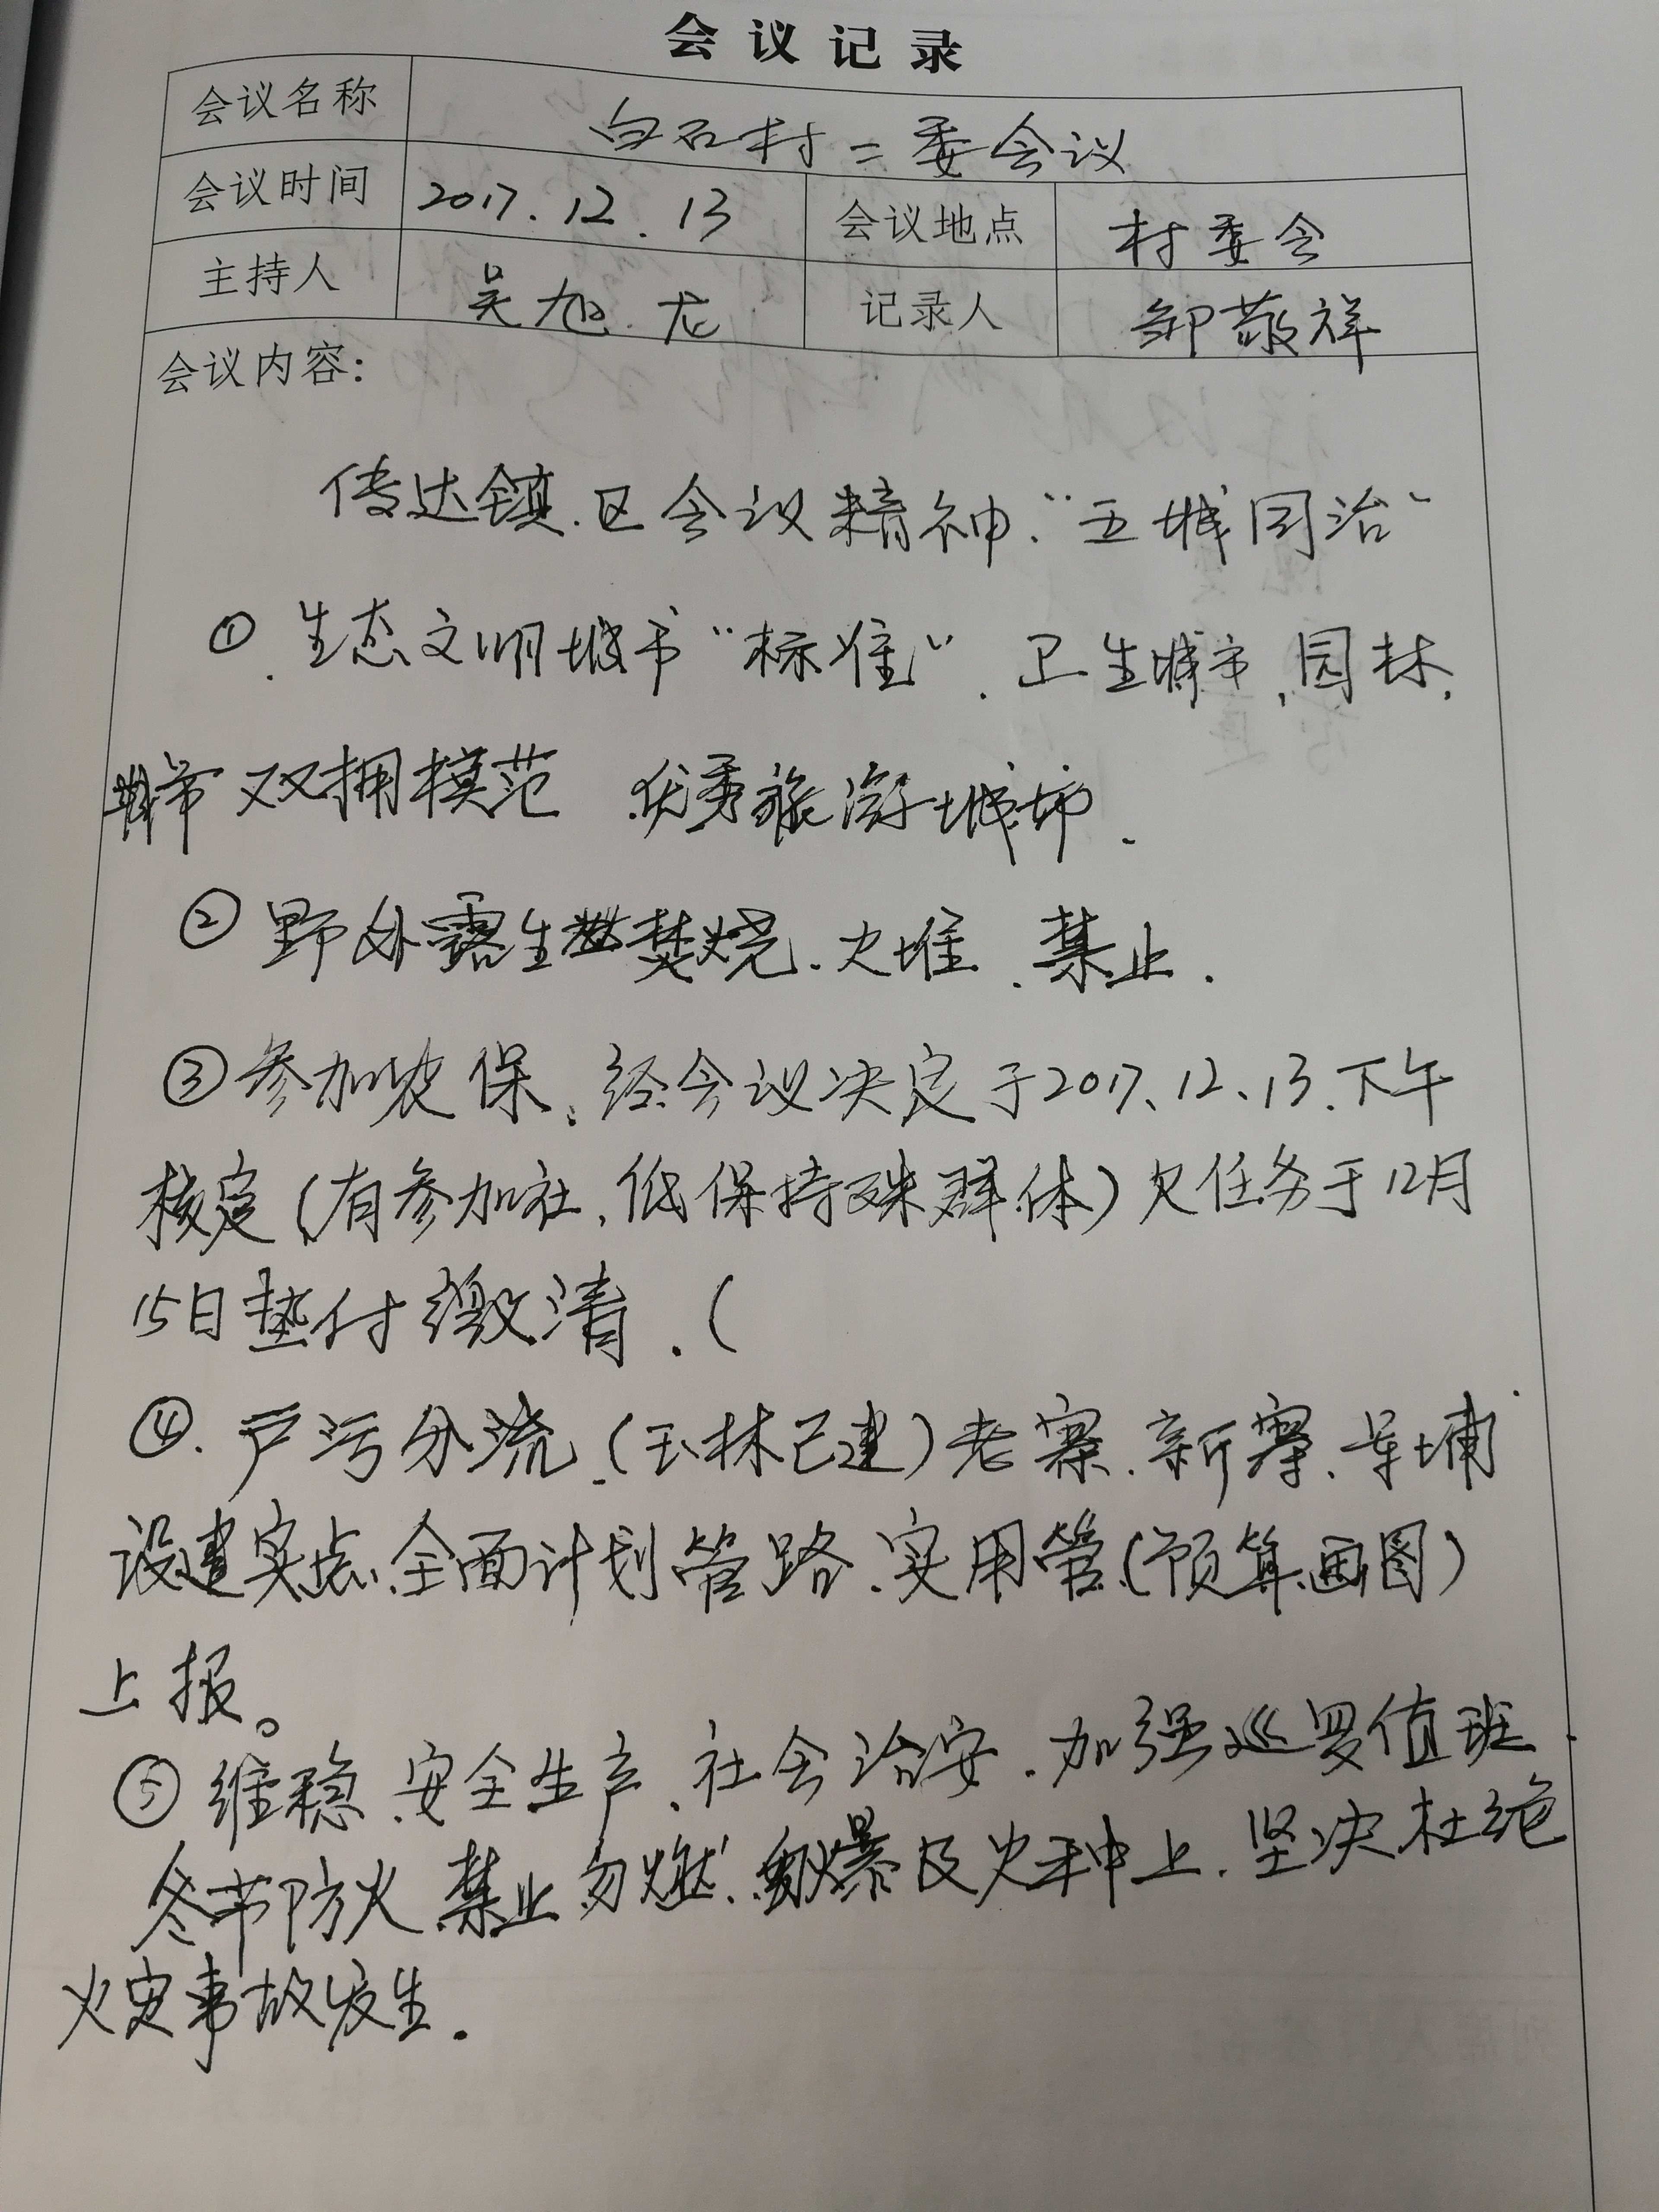 会议记录
会议名称 白石村二委会议
会议时间 2017.12.13 会议地点 村委会
主持人 吴旭龙 记录人 邹敬祥
会议内容:
传达镇.区会议精神."五城同治"
①.生态文明城市"标准".卫生城市,园林,
城市双拥模范 优秀旅游城市.
②野外露生焚烧.火堆.禁止.
③参加农保.经会议决定于2017、12、13.下午
核定(有参加社,低保特殊群体)欠任务于12月
15日垫付缴清.(
④.户污分流.(玉林已建)老寨.新寨、埔
设建实点.全面计划管路.实用管(预算.画图)
上报。
⑤维稳.安全生产.社会治安.加强巡罗值班.
冬节防火.禁止勿燃.勿爆及火种上.坚决杜绝
火灾事故发生.